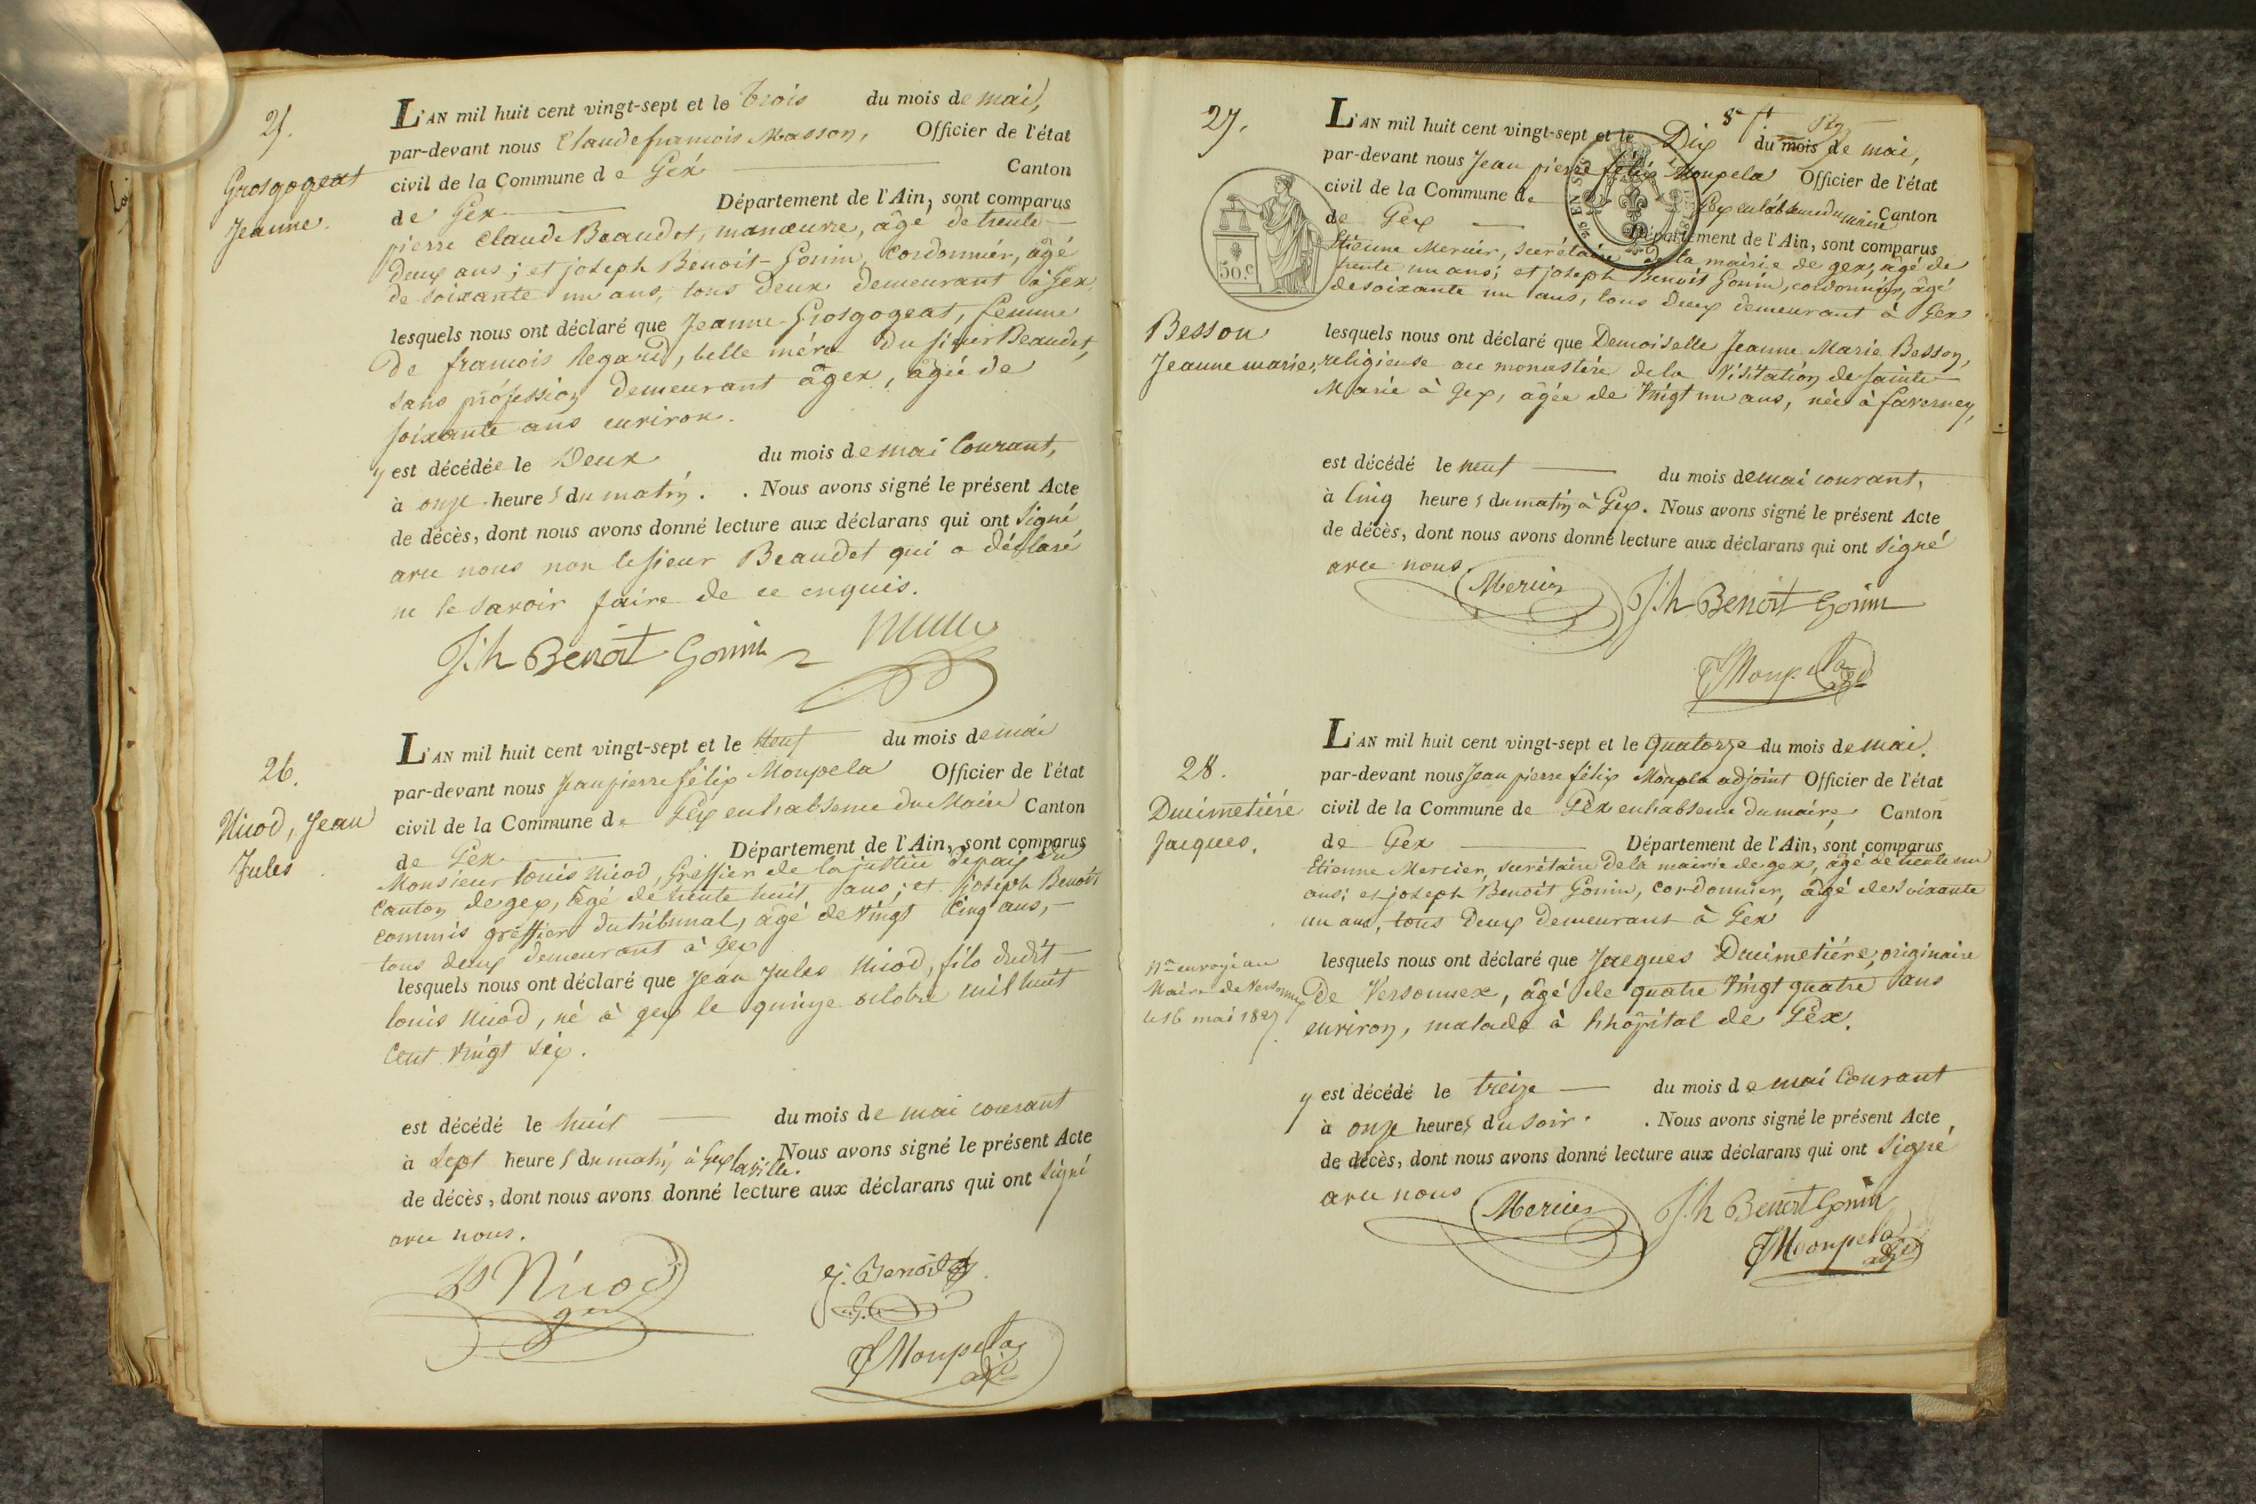 25.
Grosgogeat
Jeanne.
L'AN mil huit cent vingt-sept et le trois du mois de mai,
par-devant nous Claude francois Masson, Officier de l'état
civil de la Commune de Gex Canton
de Gex Département de l'Ain, sont comparus
pierre Claude Beaudet, manœuvre, âgé de trente
Deux ans ; et joseph Benoit-Gonin, Cordonnier, âgé
de soixante un ans, tous deux demeurant à Gex
lesquels nous ont déclaré que Jeanne Grosgogeat, femme
De francois Regard, belle mére du sieur Beaudet,
sans proféssion demeurant à gex, âgée de
soixante ans environ.
y est décédée le Deux du mois de mai Courant,
à onze heures du matin. . Nous avons signé le présent Acte
de décès, dont nous avons donné lecture aux déclarans qui ont signé
avec nous non le sieur Beaudet qui a déclaré
ne le savoir faire de ce enquis.
J.h Benoit Gonin
26.
Nicod, Jean
Jules
L'AN mil huit cent vingt-sept et le Neuf du mois de mai
par-devant nous Jean pierre félix Moupela Officier de l'état
civil de la Commune de Gex en l'absence du Maire Canton
de Gex Département de l'Ain, sont comparus
Monsieur louis Nicod, Greffier de la justice de paix du
Canton de gex, âgé de trente huit ans ; et joseph Benoit
commis greffier du tribunal, âgé de vingt Cinq ans,
tous deux demeurant à gex
lesquels nous ont déclaré que Jean Jules Nicod, fils dudit
louis Nicod, né à gex le quinze octobre mil huit
Cent vingt six.
est décédé le huit du mois de mai courant
à Sept heures du matin à Gex la ville. Nous avons signé le présent Acte
de décès, dont nous avons donné lecture aux déclarans qui ont signé
avec nous.
Ls Nicod
J. Benoit
Moupela
adj
27.
L'AN mil huit cent vingt-sept et le Dix du mois de mai,
par-devant nous Jean pierre félix Moupela Officier de l'état
civil de la Commune de Gex en l'absence du maire Canton
de Gex Département de l'Ain, sont comparus
50.c
Etienne Mercier, secrétaire de la mairie de gex, âgé de
trente un ans ; et joseph Benoit Gonin, cordonnier, âgé
de soixante un ans, tous deux demeurant à Gex
Besson
Jeanne marie,
lesquels nous ont déclaré que Demoiselle Jeanne Marie Besson,
religieuse au monastére de la Visitation de Sainte
Marie à Gex, âgée de vingt un ans, née à faverney,
est décédé le neuf du mois de mai courant,
à Cinq heures du matin à Gex. Nous avons signé le présent Acte
de décès, dont nous avons donné lecture aux déclarans qui ont signé
avec nous.
Mercier
J.h Benoit Gonin
Moupela
adj
28.
Ducimetiére
Jacques.
L'AN mil huit cent vingt-sept et le Quatorze du mois de mai.
par-devant nous Jean pierre félix Moupla adjoint Officier de l'état
civil de la Commune de Gex en l'absence du maire, Canton
de Gex Département de l'Ain, sont comparus
Etienne Mercier, secrétaire de la mairie de gex, âgé de trente un
ans ; et joseph Benoit Gonin, cordonnier, âgé de soixante
un ans, tous Deux demeurant à Gex
lesquels nous ont déclaré que Jacques Ducimetiére, originaire
De Versonnex, âgé de quatre vingt quatre ans
environ, malade à l'hôpital de Gex.
envoyé au
Maire de Versonnex
le 16 mai 1827
y est décédé le treize du mois de mai Courant
à onze heures du soir. . Nous avons signé le présent Acte
de décès, dont nous avons donné lecture aux déclarans qui ont signé
avec nous
Mercier
J.h Benoit Gonin
Moupela
adj